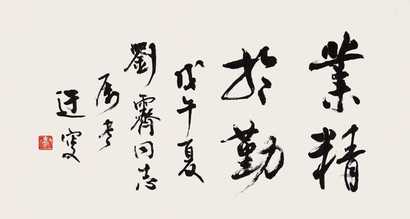 業精
於勤
戊午夏
劉霽同志
屬書
迂叟